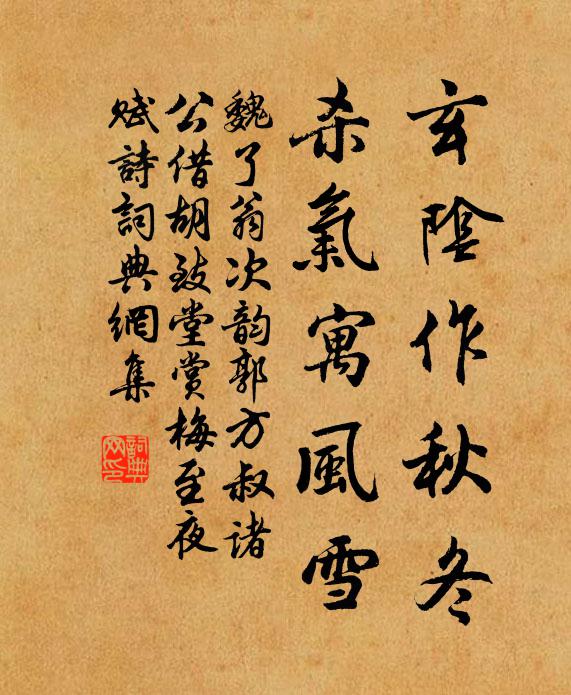 玄陰作秋冬
杀氣寓風雪
魏了翁次韵郭方叔诸
公借胡致堂賞梅至夜
赋詩詞典網集
詞典网印